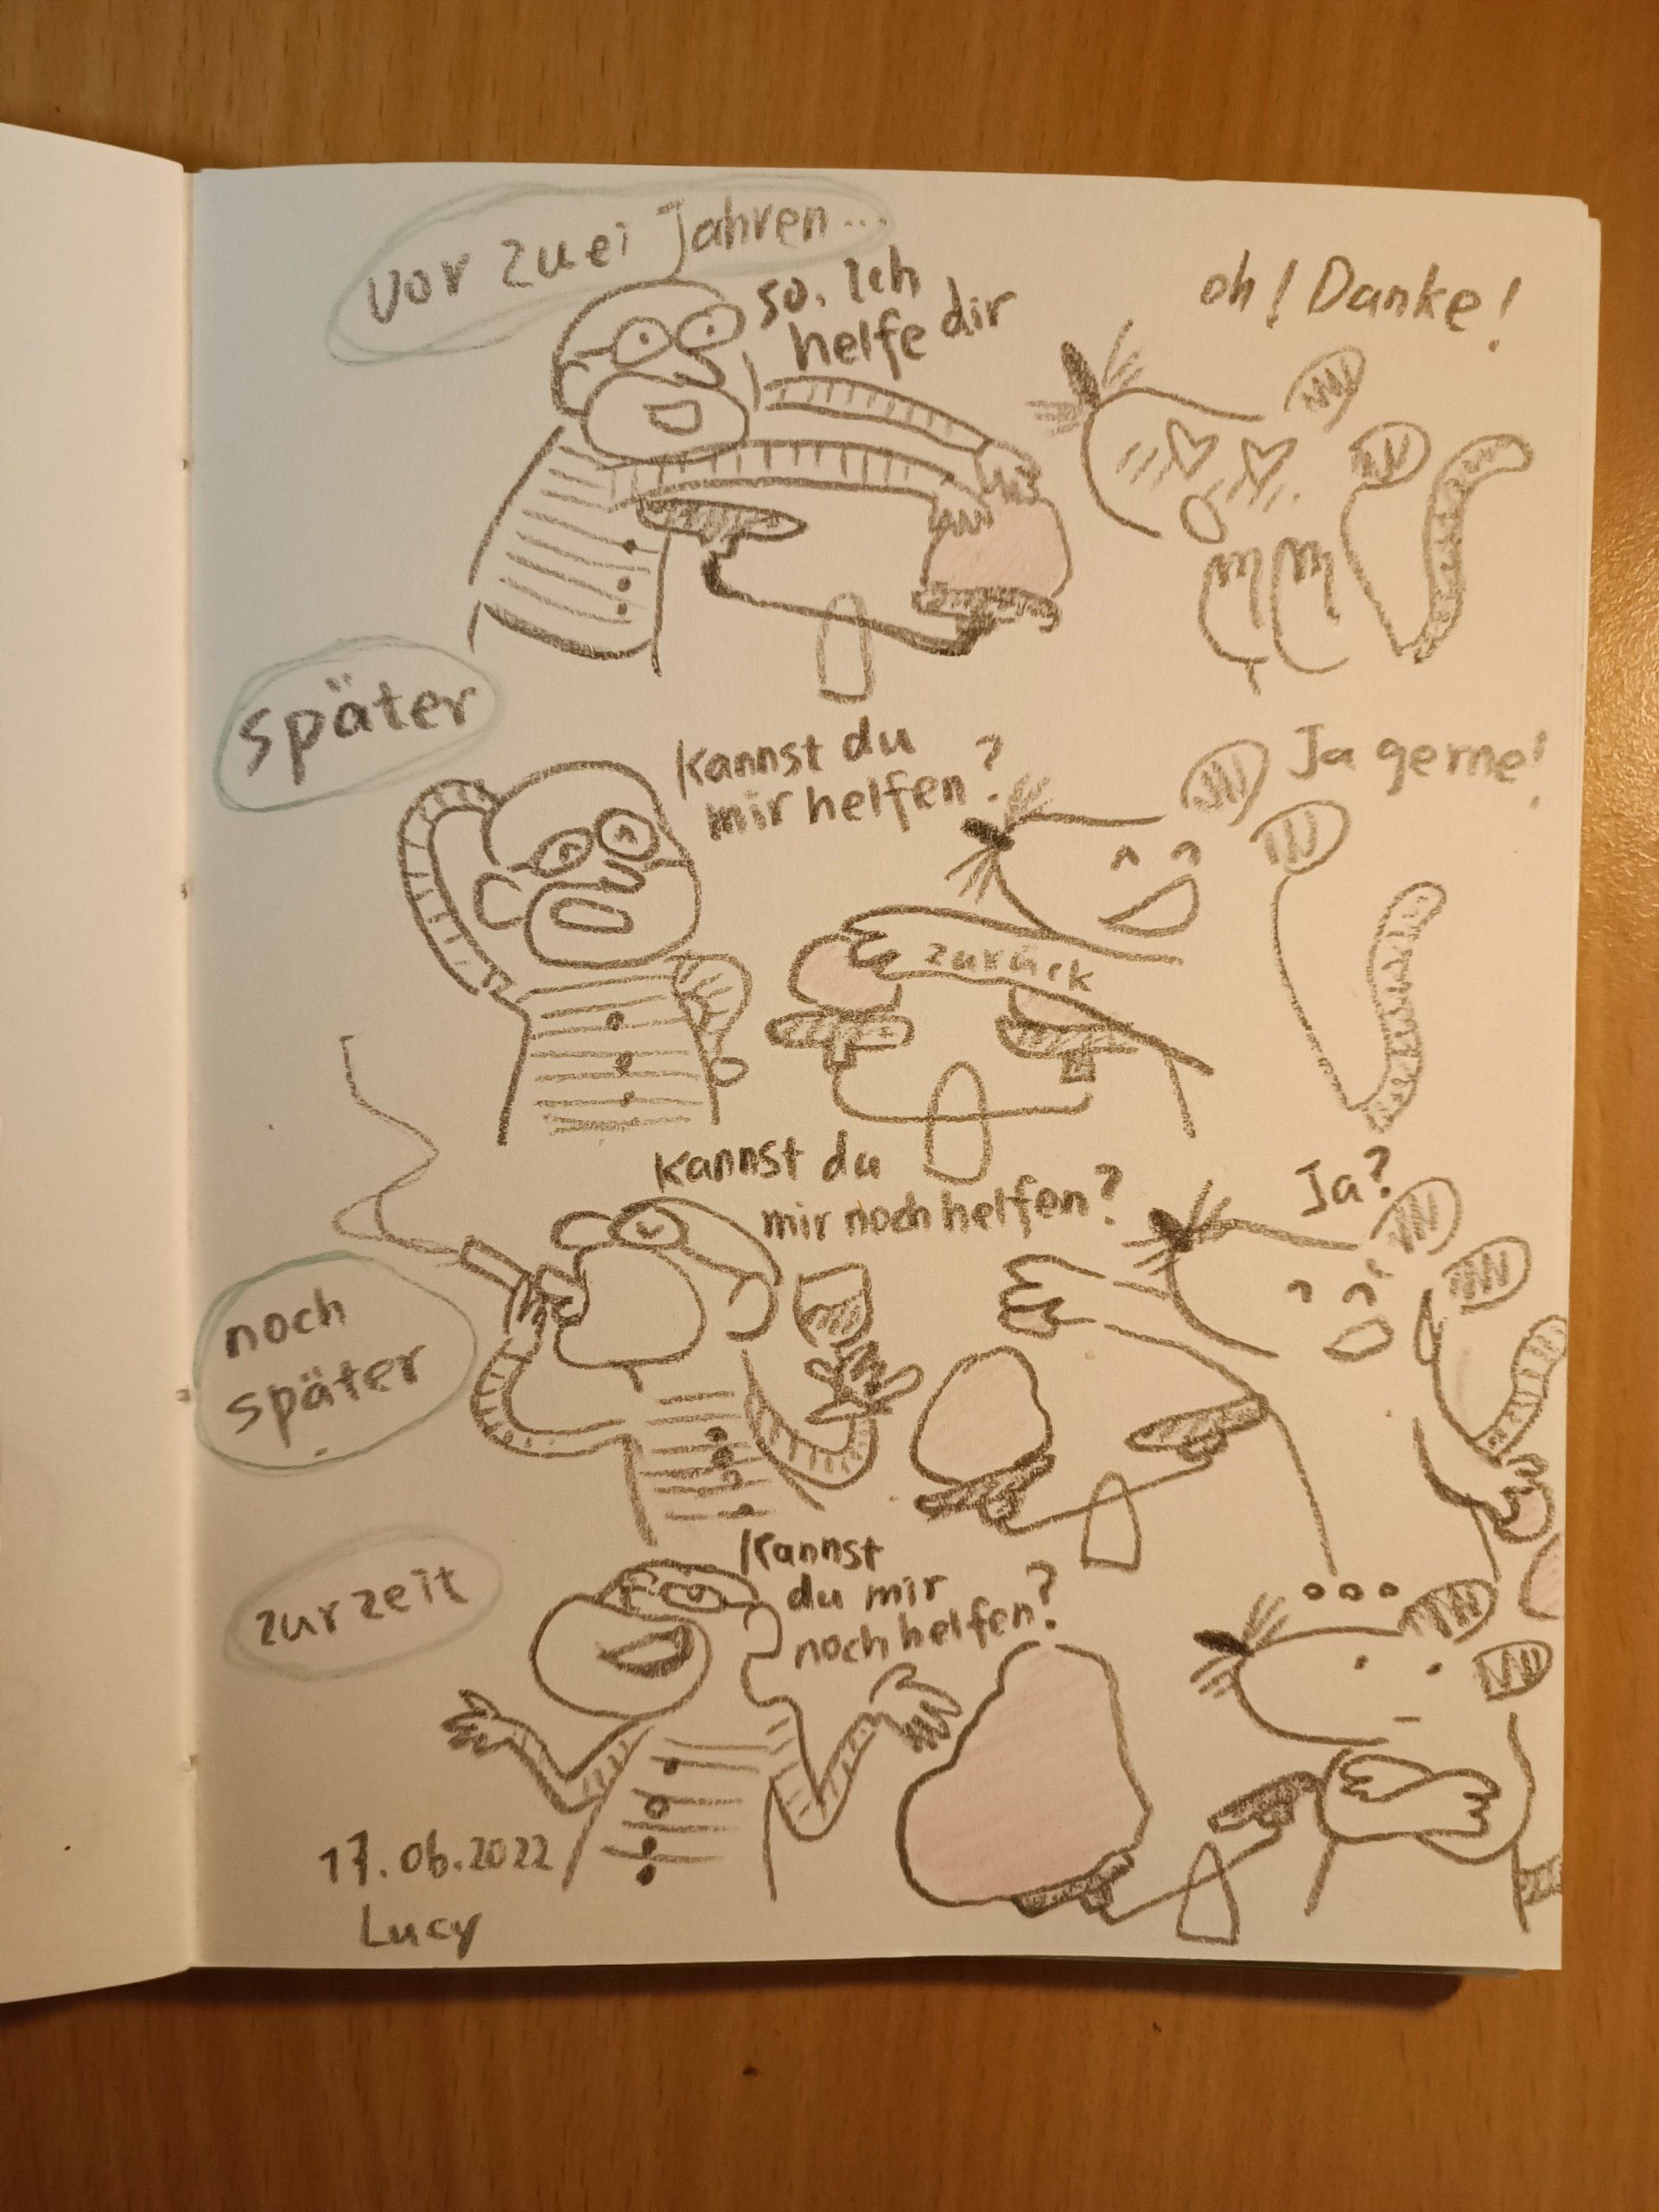 vor zuei Jahren...
so. Ich
helfe dir
oh! Danke!
später
Kannst du
mir helfen?
Ja gerne!
zurück
Kannst du
mir noch helfen?
Ja?
noch
später
zurzeit
Kannst
du mir
noch helfen?
...
17.06.2022
Lucy